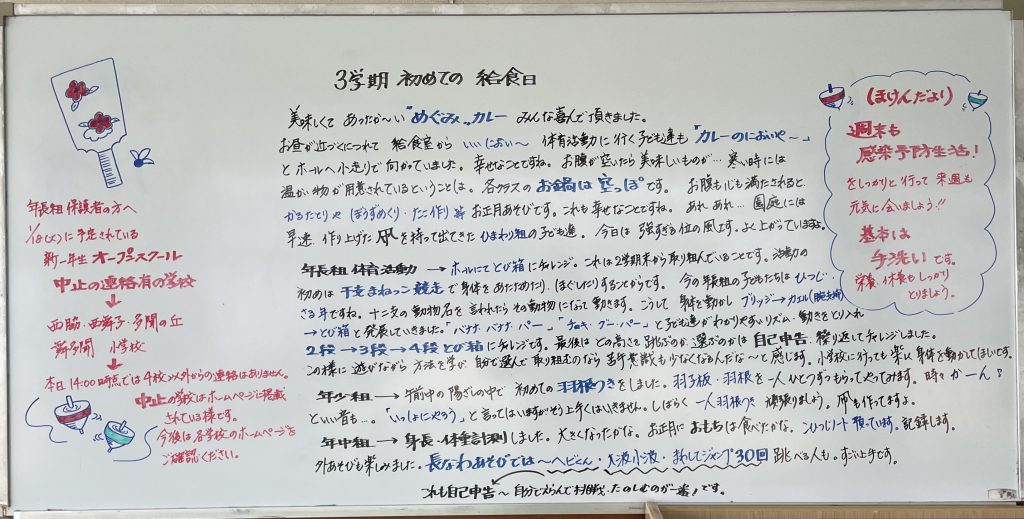 3学期 初めての 給食日
美味しくて あったか〜い "めぐみ" カレー みんな喜んで頂きました。
お昼が近づくにつれて 給食室から いいにおい〜 体育活動に行く子ども達も「カレーのにおいや〜」
とホールへ小走りで向かっていました。幸せなことですね。お腹が空いたら美味しいものが… 寒い時には
温かい物が用意されているということは。各クラスの お鍋は 空っぽ です。 お腹も心も満たされると、
かるたとりや ぼうずめくり・たこ作り等 お正月あそびです。これも幸せなことですね。あれ あれ… 園庭には
早速、作り上げた 凧 を持って出てきた ひまわり組の子ども達。今日は 強すぎる位の風です。よく上がっていますよ。
年長組 体育活動 → ホールにて とび箱にチャレンジ。これは2学期末から取り組んでいることです。活動の
初めは 干支まねっこ競走 で身体をあたためたり、ほぐしたりすることからです。今の年長組の子どもたちは ひつじ・
さる年ですね。十二支の動物名を言われたらその動物になって動きます。こうして 身体を動かし ブリッジ→カエル(腕支持)
→とび箱 と発展していきました。「バナナ バナナ パー」「チョキ・グー・パー」と子ども達がわかりやすいリズム・動きをとり入れ
2段→3段→4段とび箱 にチャレンジです。最後は どの高さを 跳ぶのか 選ぶのかは 自己申告。繰り返してチャレンジしました。
この様に 遊びながら 方法を学び 自分で選んで 取り組むのなら 苦手意識も少なくなるんだな〜と感じます。小学校に行っても 楽しい身体を動かしてほしいです。
年少組 → 午前中の陽ざしの中で 初めての 羽根つきをしました。羽子板・羽根を 一人ひとつずつもらってやってみます。時々 かーん!
といい音も…。「いっしょにやろう」と言ってはいますがそう上手くはいきません。しばらく 一人羽根つき 頑張りましょう。凧も作ってますよ。
年中組 → 身長・体重計測しました。大きくなったかな。お正月におもちは食べたかな。こひつじノート 預っています。記録します。
外あそびも楽しみました。長なわあそびでは〜ヘビさん・大波小波・まわしてジャンプ 30回 跳べる人も。すごい上手です。
これも自己申告〜自分でえらんで挑戦・たのしむのが一番!です。
年長組 保護者の方へ
1/18(火)に予定されている
新一年生 オープンスクール
中止の連絡有の学校
↓
西脇・西舞子・多聞の丘
舞多聞 小学校
↓
本日14:00時点では4校以外からの連絡はありません。
中止の学校はホームページに掲載
されている様です。
今後は各学校のホームページを
ご確認ください。
(ほけんだより)
週末も
感染予防生活!
をしっかりと行って 来週も
元気に会いましょう!!
基本は
手洗い です。
栄養・休養もしっかり
とりましょう。